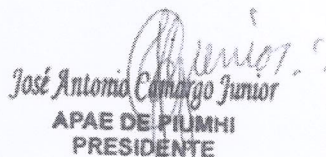 Junior
José Antonio Camargo Junior
APAE DE PIUMHI
PRESIDENTE